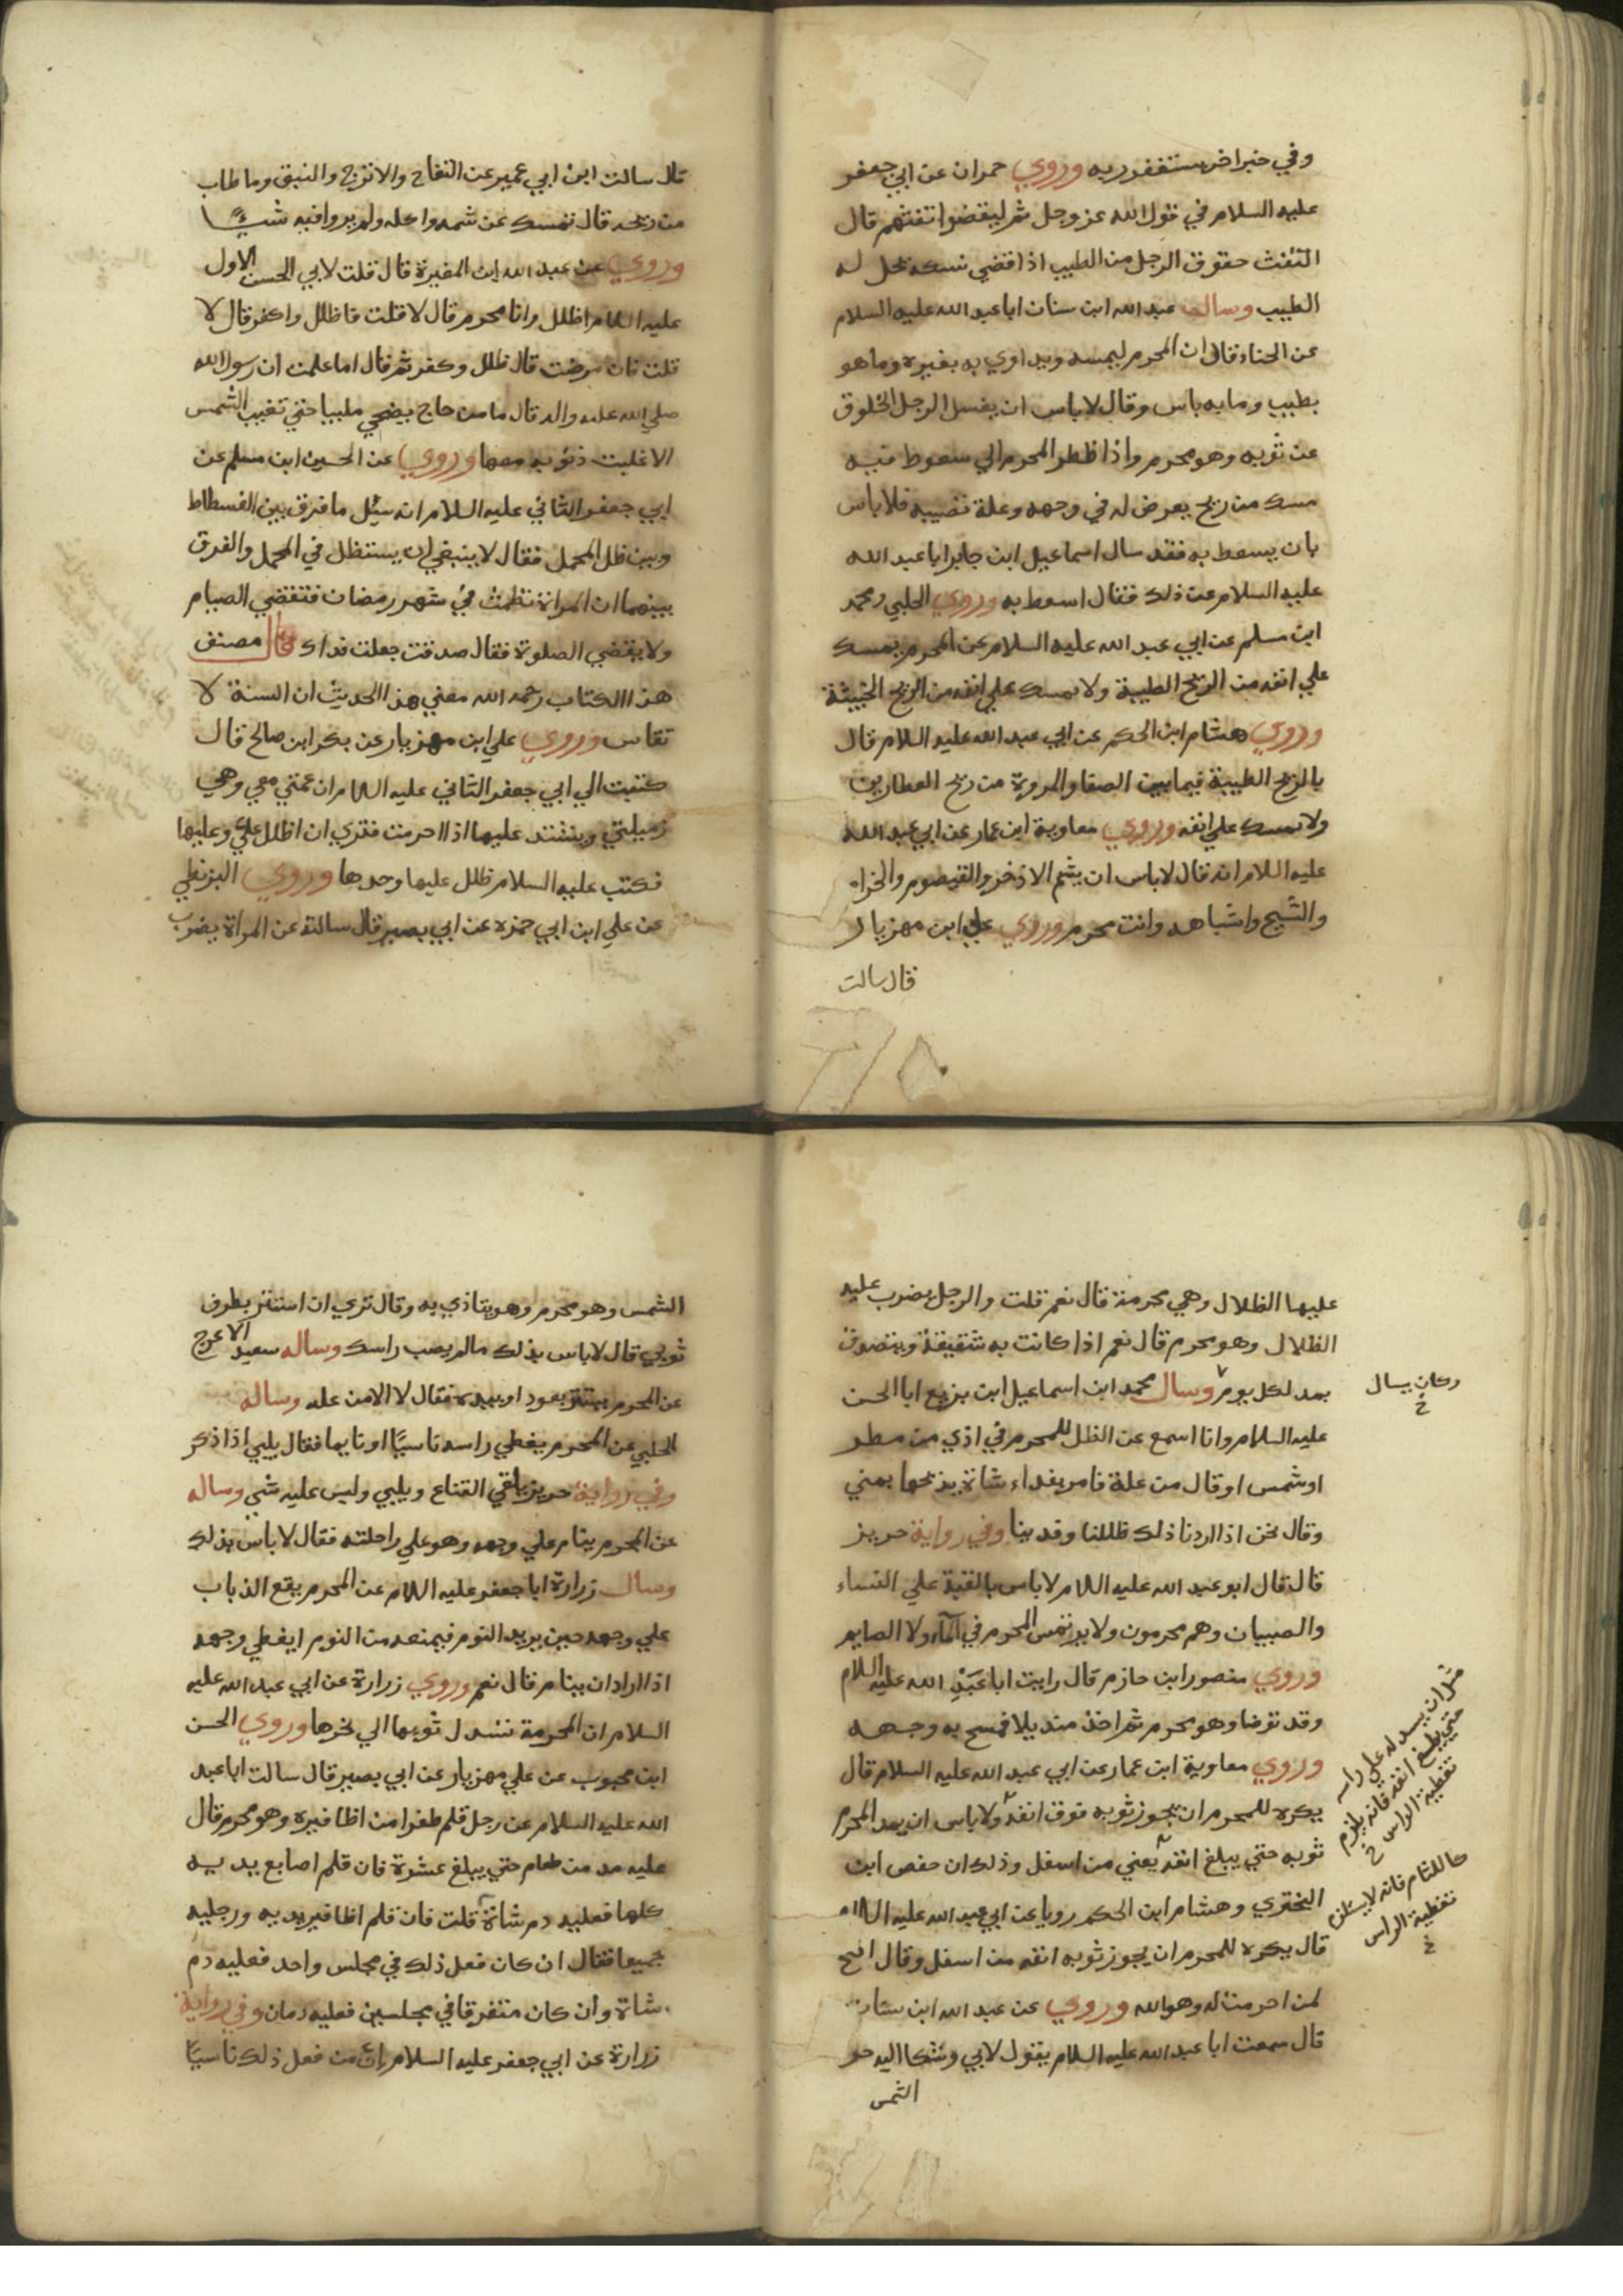 وفي خبر اخر يستغفر ربه وروي حمران عن ابي جعفر
عليه السلام في قول الله عز وجل ثم ليقضوا تفثهم قال
التفث حقوق الرجل من الطيب اذا قضي نسكه حل له
الطيب وسالت عبد الله ابن سنان ابا عبد الله عليه السلام
عن الحناء فقال ان المحرم ليمسه ويداوي به بغيره وما هو
بطيب وما به باس وقال لا باس ان يغسل الرجل الخلوق
عن ثوبه وهو محرم واذا ظطر المحرم الي سعوط فيه
مسك من ريح يعرض له في وجهه وعلة تصيبه فلا باس
بان يسعط به فقد سال اسماعيل ابن جابر ابا عبد الله
عليه السلام عن ذلك فقال اسعط به وروي الحلبي ومحمد
ابن مسلم عن ابي عبد الله عليه السلام عن المحرم يمسك
علي انفه من الريح الطيبة ولا يمسك علي انفه من الريح الخبيثة
وروي هشام ابن الحكم عن ابي عبد الله عليه السلام قال
بالريح الطيبة فيما بين الصفا والمروة من ريح العطارين
ولا يمسك علي انفه وروي معاوية ابن عمار عن ابي عبد الله
عليه السلام انه قال لا باس ان يشم الاذخر والقيصوم والخزام
والشيح واشباهه وانت محرم وروي علي ابن مهزيار
قال سالت
قال سالت ابن ابي عمير عن التفاح والاترج والنبق وما طاب
من ريحه قال تمسك عن شمه واكله ولم يروا فيه شيئا
وروي عن عبد الله ابن المغيرة قال قلت لابي الحسن الاول
عليه السلام اظلل وانا محرم قال لا قلت فاظلل واكفر قال لا
قلت فان مرضت قال ظلل وكفر ثم قال اما علمت ان رسول الله
صلي الله عليه واله قال ما من حاج يضحي ملبيا حتي تغيب الشمس
الا غابت ذنوبه معها وروي عن الحسين ابن مسلم عن
ابي جعفر الثاني عليه السلام انه سئل ما فرق بين الفسطاط
وبين ظل المحمل فقال لا ينبغي ان يستظل في المحمل والفرق
بينهما ان المراة تطمث في شهر رمضان فتقضي الصيام
ولا يقضي الصلوة فقال صدقت جعلت فداك قال مصنف
هذا الكتاب رحمه الله معني هذا الحديث ان السنة لا
تقاس وروي علي ابن مهزيار عن بكر ابن صالح قال
كتبت الي ابي جعفر الثاني عليه السلام ان عمتي معي وهي
زميلتي ويشتد عليها اذا احرمت فتري ان اظلل علي وعليها
فكتب عليه السلام ظلل عليها وحدها وروي البزنطي
عن علي ابن ابي حمزه عن ابي بصير قال سالته عن المراة يضرب
عليها الظلال وهي محرمة قال نعم قلت والرجل يضرب عليه
الظلال وهو محرم قال نعم اذا كانت به شقيقة ويتصدق
بمد لكل يوم وسال محمد ابن اسماعيل ابن بزيع ابا الحسن
وكان يسال
خ
عليه السلام وانا اسمع عن الظل للمحرم في اذي من مطر
او شمس او قال من علة فامر بفداء شاة يذبحها بمني
وقال نحن اذا اردنا ذلك ظللنا وفدينا وفي رواية حريز
قال قال ابو عبد الله عليه السلام لا باس بالقبة علي النساء
والصبيان وهم محرمون ولا يرتمس المحرم في الماء ولا الصايم
وروي منصور ابن حازم قال رايت ابا عبد الله عليه السلام
وقد توضا وهو محرم ثم اخذ منديلا فمسح به وجهه
وروي معاوية ابن عمار عن ابي عبد الله عليه السلام قال
يكره للمحرم ان يجوز ثوبه فوق انفه ولا باس ان يمد المحرم
ثوبه حتي يبلغ انفه يعني من اسفل وذلك ان حفص ابن
البختري وهشام ابن الحكم رويا عن ابي عبد الله عليه السلام
قال يكره للمحرم ان يجوز ثوبه انفه من اسفل وقال اضح
لمن احرمت له وهو الله وروي عن عبد الله ابن سنان
قال سمعت ابا عبد الله عليه السلام يقول لابي وشكا اليه حر
الشمس
مثل ان يسدله علي راسه
حتي يبلغ انفه فانه يلزم
تغطية الراس خ
كاللثام فانه لا يستلزم
تغطية الراس
خ
الشمس وهو محرم وهو يتاذي به وقال تري ان استتر بطرف
ثوبي قال لا باس بذلك ما لم يصب راسك وساله سعيد الاعرج
عن المحرم يستتر بعود او بيده فقال لا الا من علة وساله
الحلبي عن المحرم يغطي راسه ناسيا او نايما فقال يلبي اذا ذكر
وفي رواية حريز يلقي القناع ويلبي وليس عليه شي وساله
عن المحرم ينام علي وجهه وهو علي راحلته فقال لا باس بذلك
وسال زرارة ابا جعفر عليه السلام عن المحرم يقع الذباب
علي وجهه حين يريد النوم فيمنعه من النوم ايغطي وجهه
اذا اراد ان ينام قال نعم وروي زرارة عن ابي عبد الله عليه
السلام ان المحرمة تسدل ثوبها الي نحرها وروي الحسن
ابن محبوب عن علي مهزيار عن ابي بصير قال سالت ابا عبد
الله عليه السلام عن رجل قلم ظفرا من اظافيره وهو محرم قال
عليه مد من طعام حتي يبلغ عشرة فان قلم اصابع يديه
كلها فعليه دم شاة قلت فان قلم اظافير يديه ورجليه
جميعا فقال ان كان فعل ذلك في مجلس واحد فعليه دم
شاة وان كان متفرقا في مجلسين فعليه دمان وفي رواية
زرارة عن ابي جعفر عليه السلام ان من فعل ذلك ناسيا